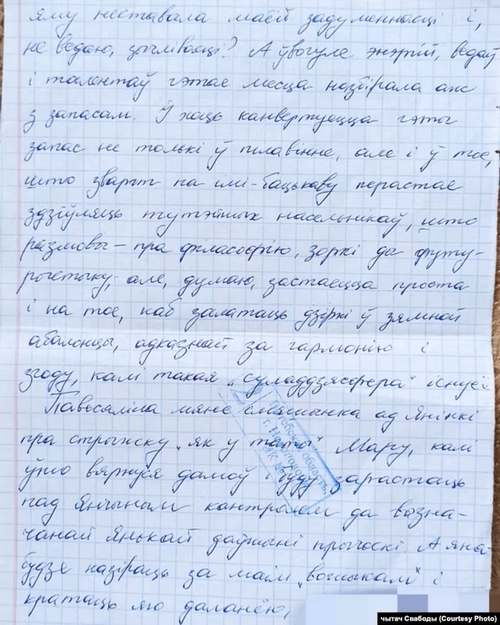 яму неставала маёй задуменнасці і,
не ведаю, зычлівасці? А ўвогуле энэргій, ведаў
і талентаў гэтае месца назбірала аж
з запасам. І хаць канвертуецца гэты
запас не толькі ў піларінне, але і ў тое,
што зварот па імі-бацькаву перастае
здзіўляць тутэйшых насельнікаў, што
размовы – пра філасофію, зоркі да футу-
рыстыку, але, думаю, застаецца проста
і на тое, каб залатаць дзіркі ў зямной
абалонцы, адказнай за гармонію і
згоду, калі такая „суладдзясфера" існуе.
Павесяліла мяне ад Янінкі
пра стрыжку „як у таты" Мару, калі
ўжо вярнуся дамоў і буду зарастаць
пад Яніным кантролем да вызна-
чанай Янькай даўжыні прычоскі. А яна
будзе назіраць за маім „вожыкам" і
кратаць яго далонею,
чытач Свабоды (Courtesy Photo)